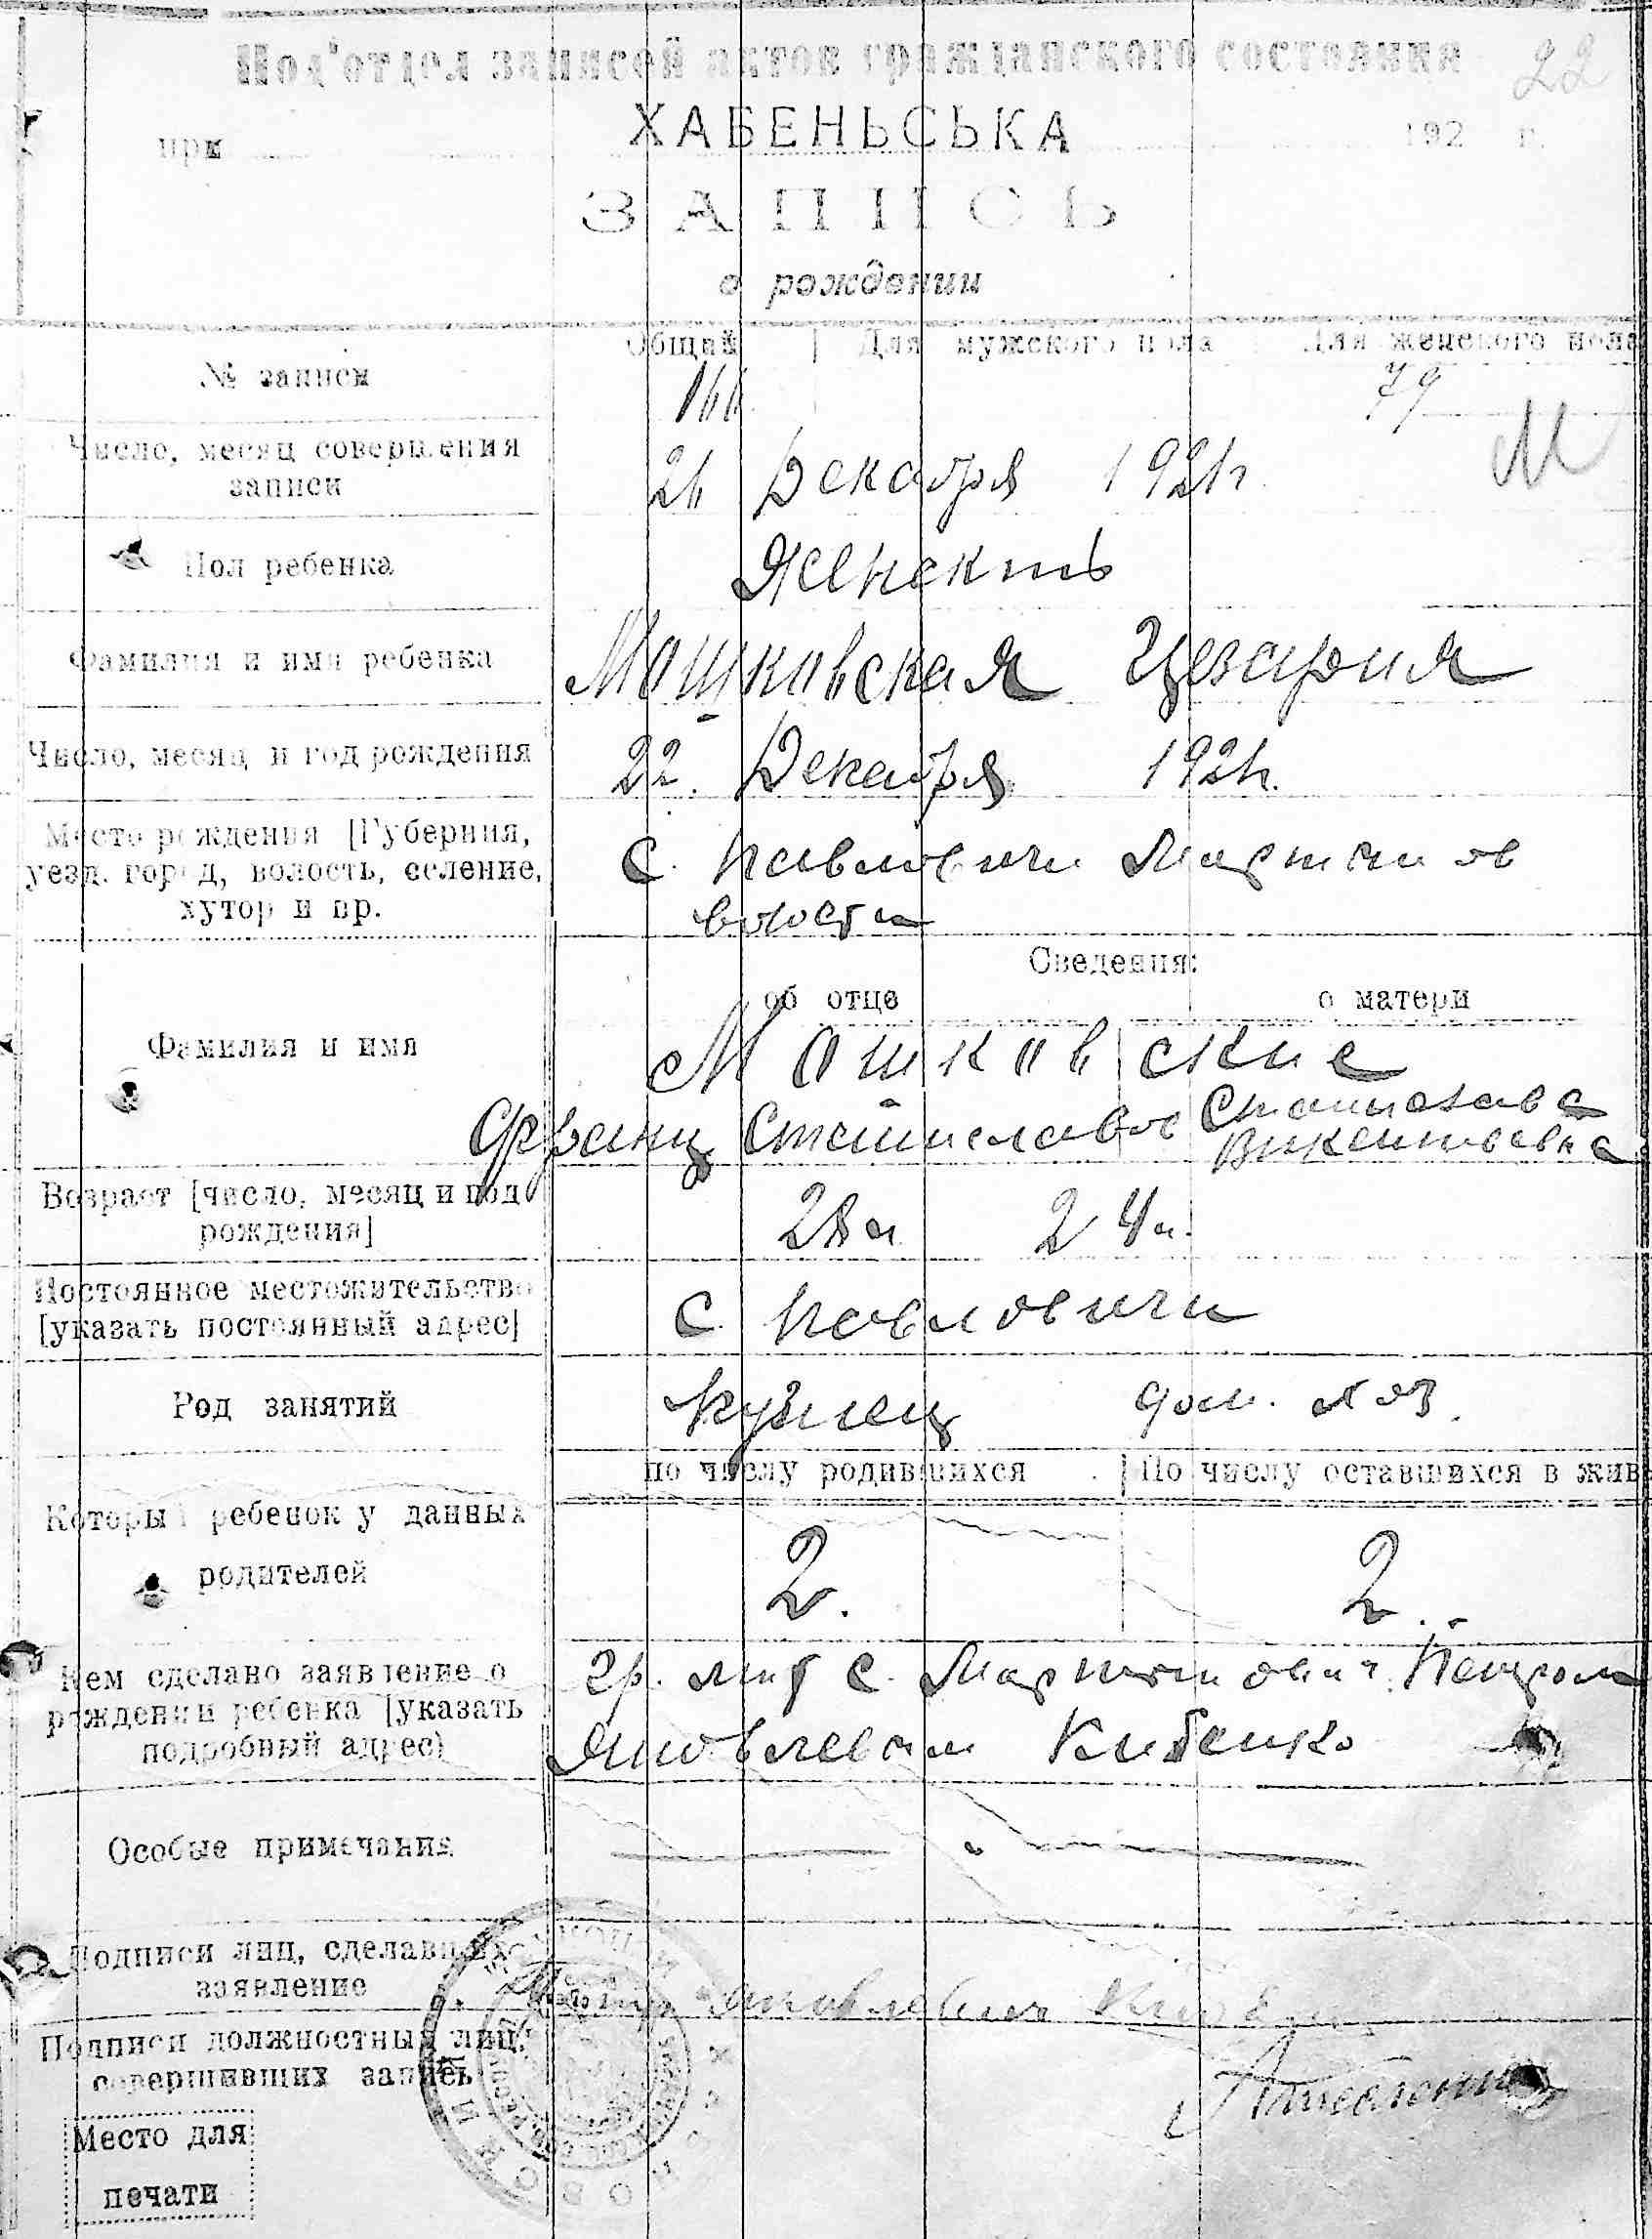 Под'отдел записей актов гражданского состояния 22
ХАБЕНЬСЬКА
при 192 г.
ЗАПИСЬ
о рождении
Общий Для мужского пола Для женского пола
№ записи 166 79
М
Число, месяц совершения
записи
26 Декабря 1921 г
Пол ребенка
Фамилия и имя ребенка Мошковская Цезария
Число, месяц и год рождения 22. Декабря 1921 г.
Место рождения [Губерния,
уезд, город, волость, селение,
хутор и пр.
с. Павловичи Мартинов
волости
Сведения:
об отце о матери
Фамилия и имя
Мошковские
Франц Станиславов Станислава
Викентьевна
Возраст [число, месяц и год
рождения]
28 л 24 л.
Постоянное местожительство
[указать постоянный адрес]
с. Павловичи
Род занятий кузнец дом. хоз.
по числу родившихся По числу оставшихся в жив
Который ребенок у данных
родителей
2. 2.
Кем сделано заявление о
рождении ребенка [указать
подробный адрес)
гр. с. Мартинович Петром
Яковлевым Кибенко
Особые примечания
Подписи лиц, сделавших
заявление
Яковлевич
Подписи должностных лиц,
совершивших запись
Место для
печати